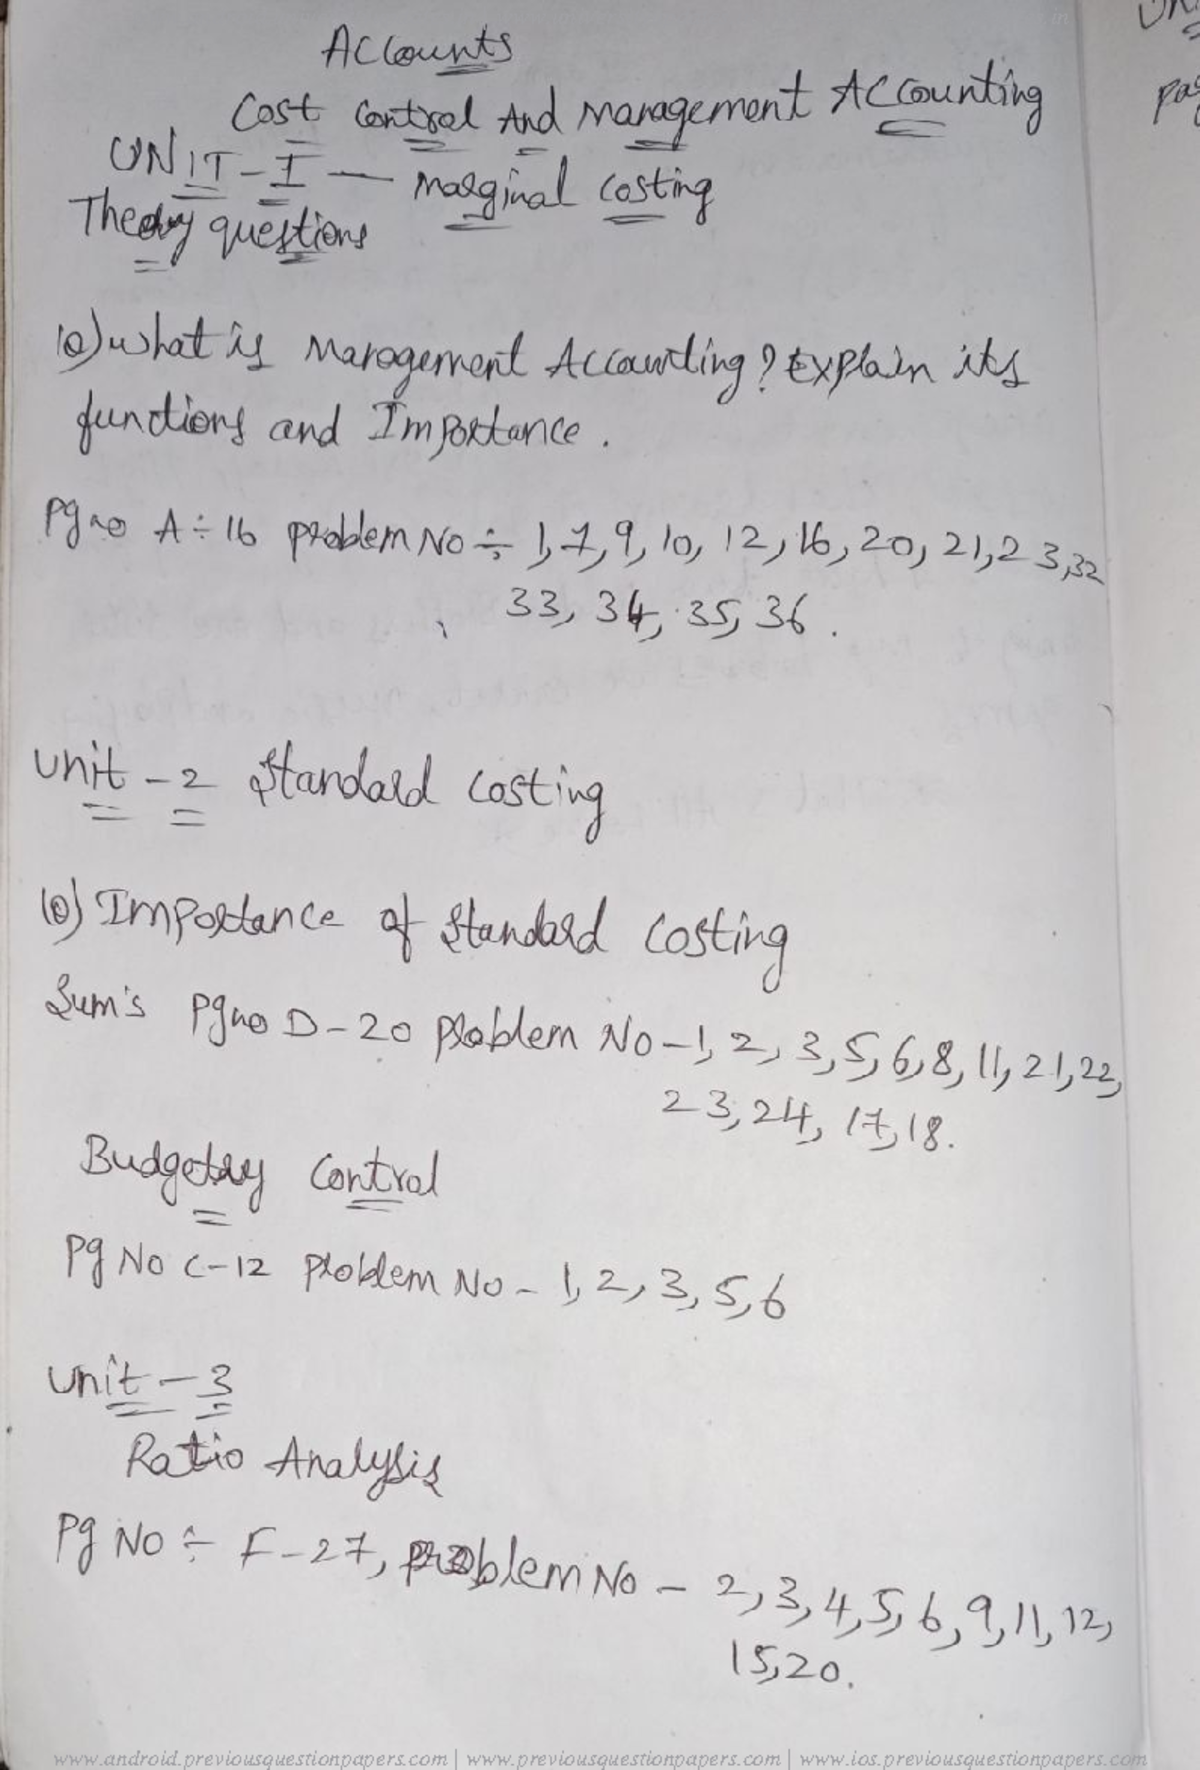 Accounts
Cost Control And Management Accounting
UNIT-I — Marginal Costing
Theory questions
1Q) what is Management Accounting? Explain its
functions and Importance.
Pg no A÷16 problem No ÷ 1,7,9,10,12,16,20,21,23,32
33, 34, 35, 36.
Unit-2 Standard Costing
1Q) Importance of Standard Costing
Sum's Pg no D-20 problem No-1, 2, 3, 5, 6, 8, 11, 21, 22,
23, 24, 17, 18.
Budgetary Control
Pg No C-12 problem No - 1, 2, 3, 5, 6
Unit-3
Ratio Analysis
Pg No ÷ F-27, problem No - 2, 3, 4, 5, 6, 9, 11, 12,
15, 20.
www.android.previousquestionpapers.com | www.previousquestionpapers.com | www.ios.previousquestionpapers.com